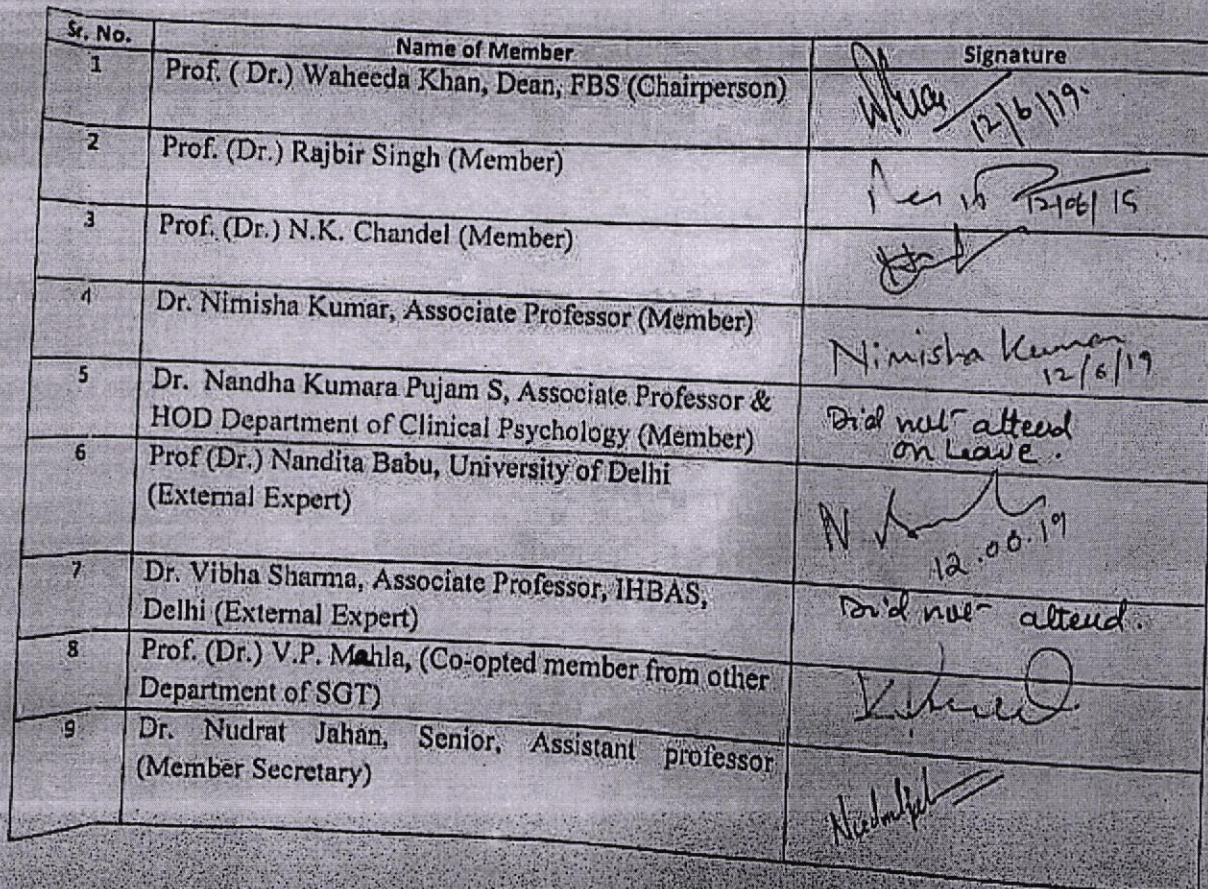 Sr. No. Name of Member Signature
1 Prof. ( Dr.) Waheeda Khan, Dean, FBS (Chairperson)
12/6/19.
2 Prof. (Dr.) Rajbir Singh (Member)
12/06/15
3 Prof. (Dr.) N.K. Chandel (Member)
4 Dr. Nimisha Kumar, Associate Professor (Member)
Nimisha Kumar
12/6/19
5 Dr. Nandha Kumara Pujam S, Associate Professor &
HOD Department of Clinical Psychology (Member)
Did not attend
on Leave.
6 Prof (Dr.) Nandita Babu, University of Delhi
(External Expert)
N
12.06.19
7 Dr. Vibha Sharma, Associate Professor, IHBAS,
Delhi (External Expert)
Did not attend.
8 Prof. (Dr.) V.P. Mahla, (Co-opted member from other
Department of SGT)
9 Dr. Nudrat Jahan, Senior, Assistant professor
(Member Secretary)